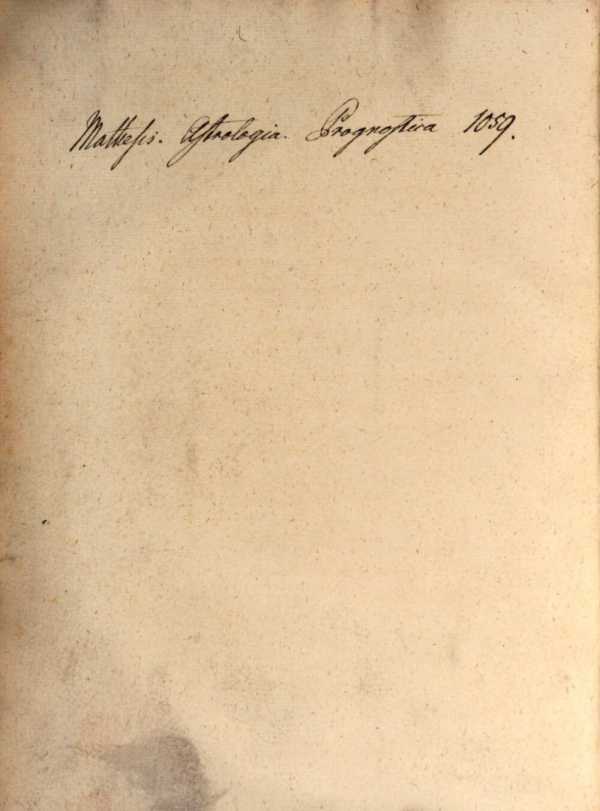 Mathesis. Astrologia. Prognostica 1059.